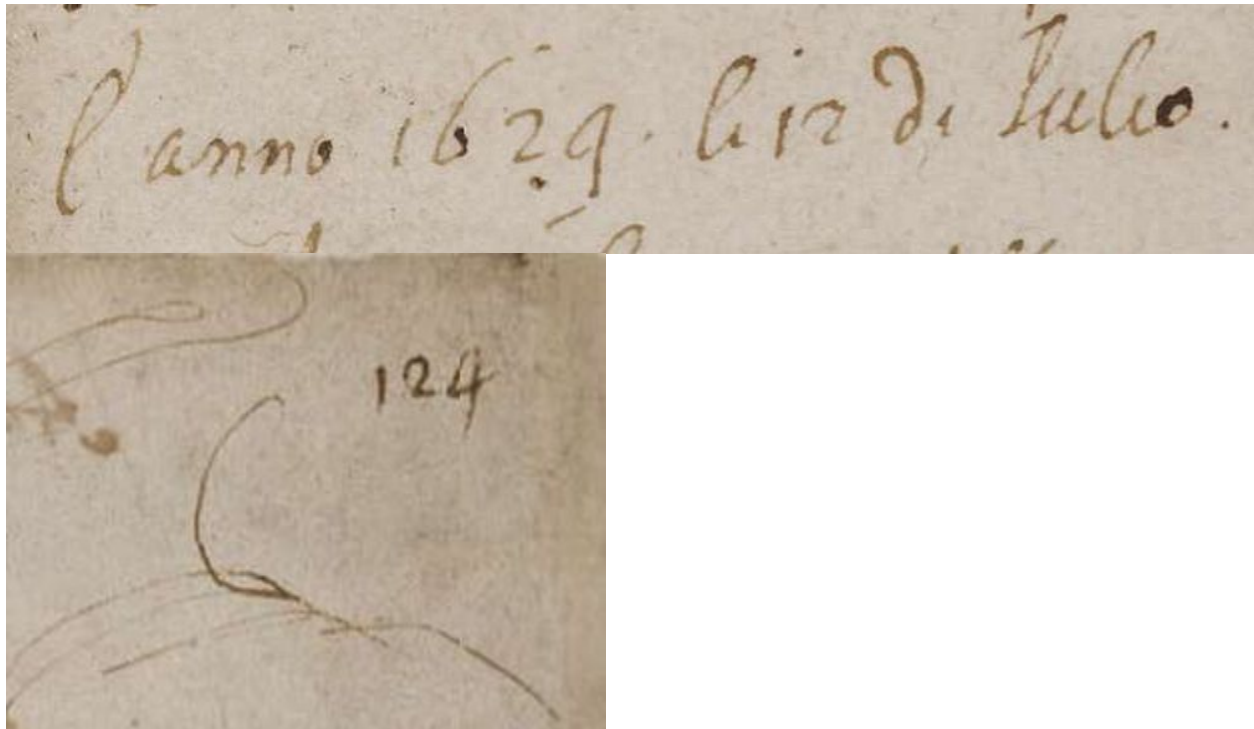 l'anno 1629. li 12 di Iulio.
124